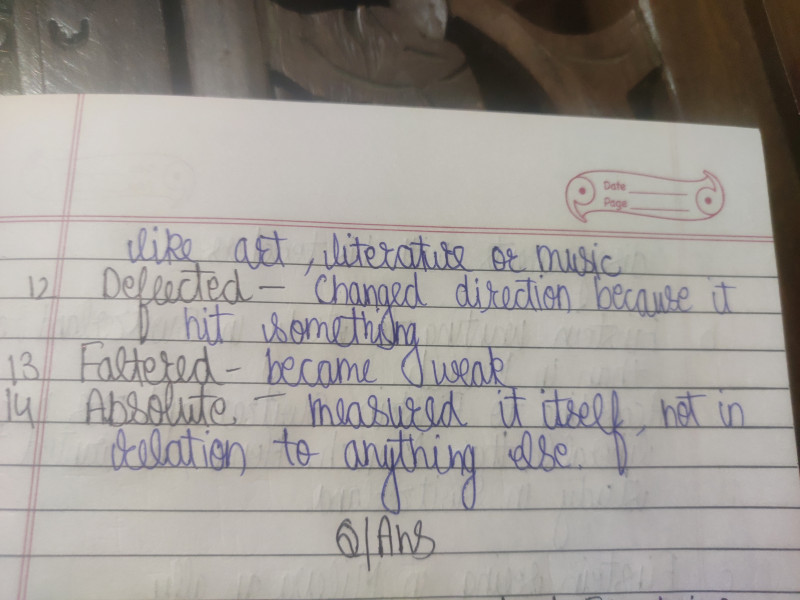 Date
Page
like art, literature or music
12 Deflected - Changed direction because it
hit something
13 Faltered - became weak
14 Absolute. - measured it itself, not in
relation to anything else.
Q/Ans